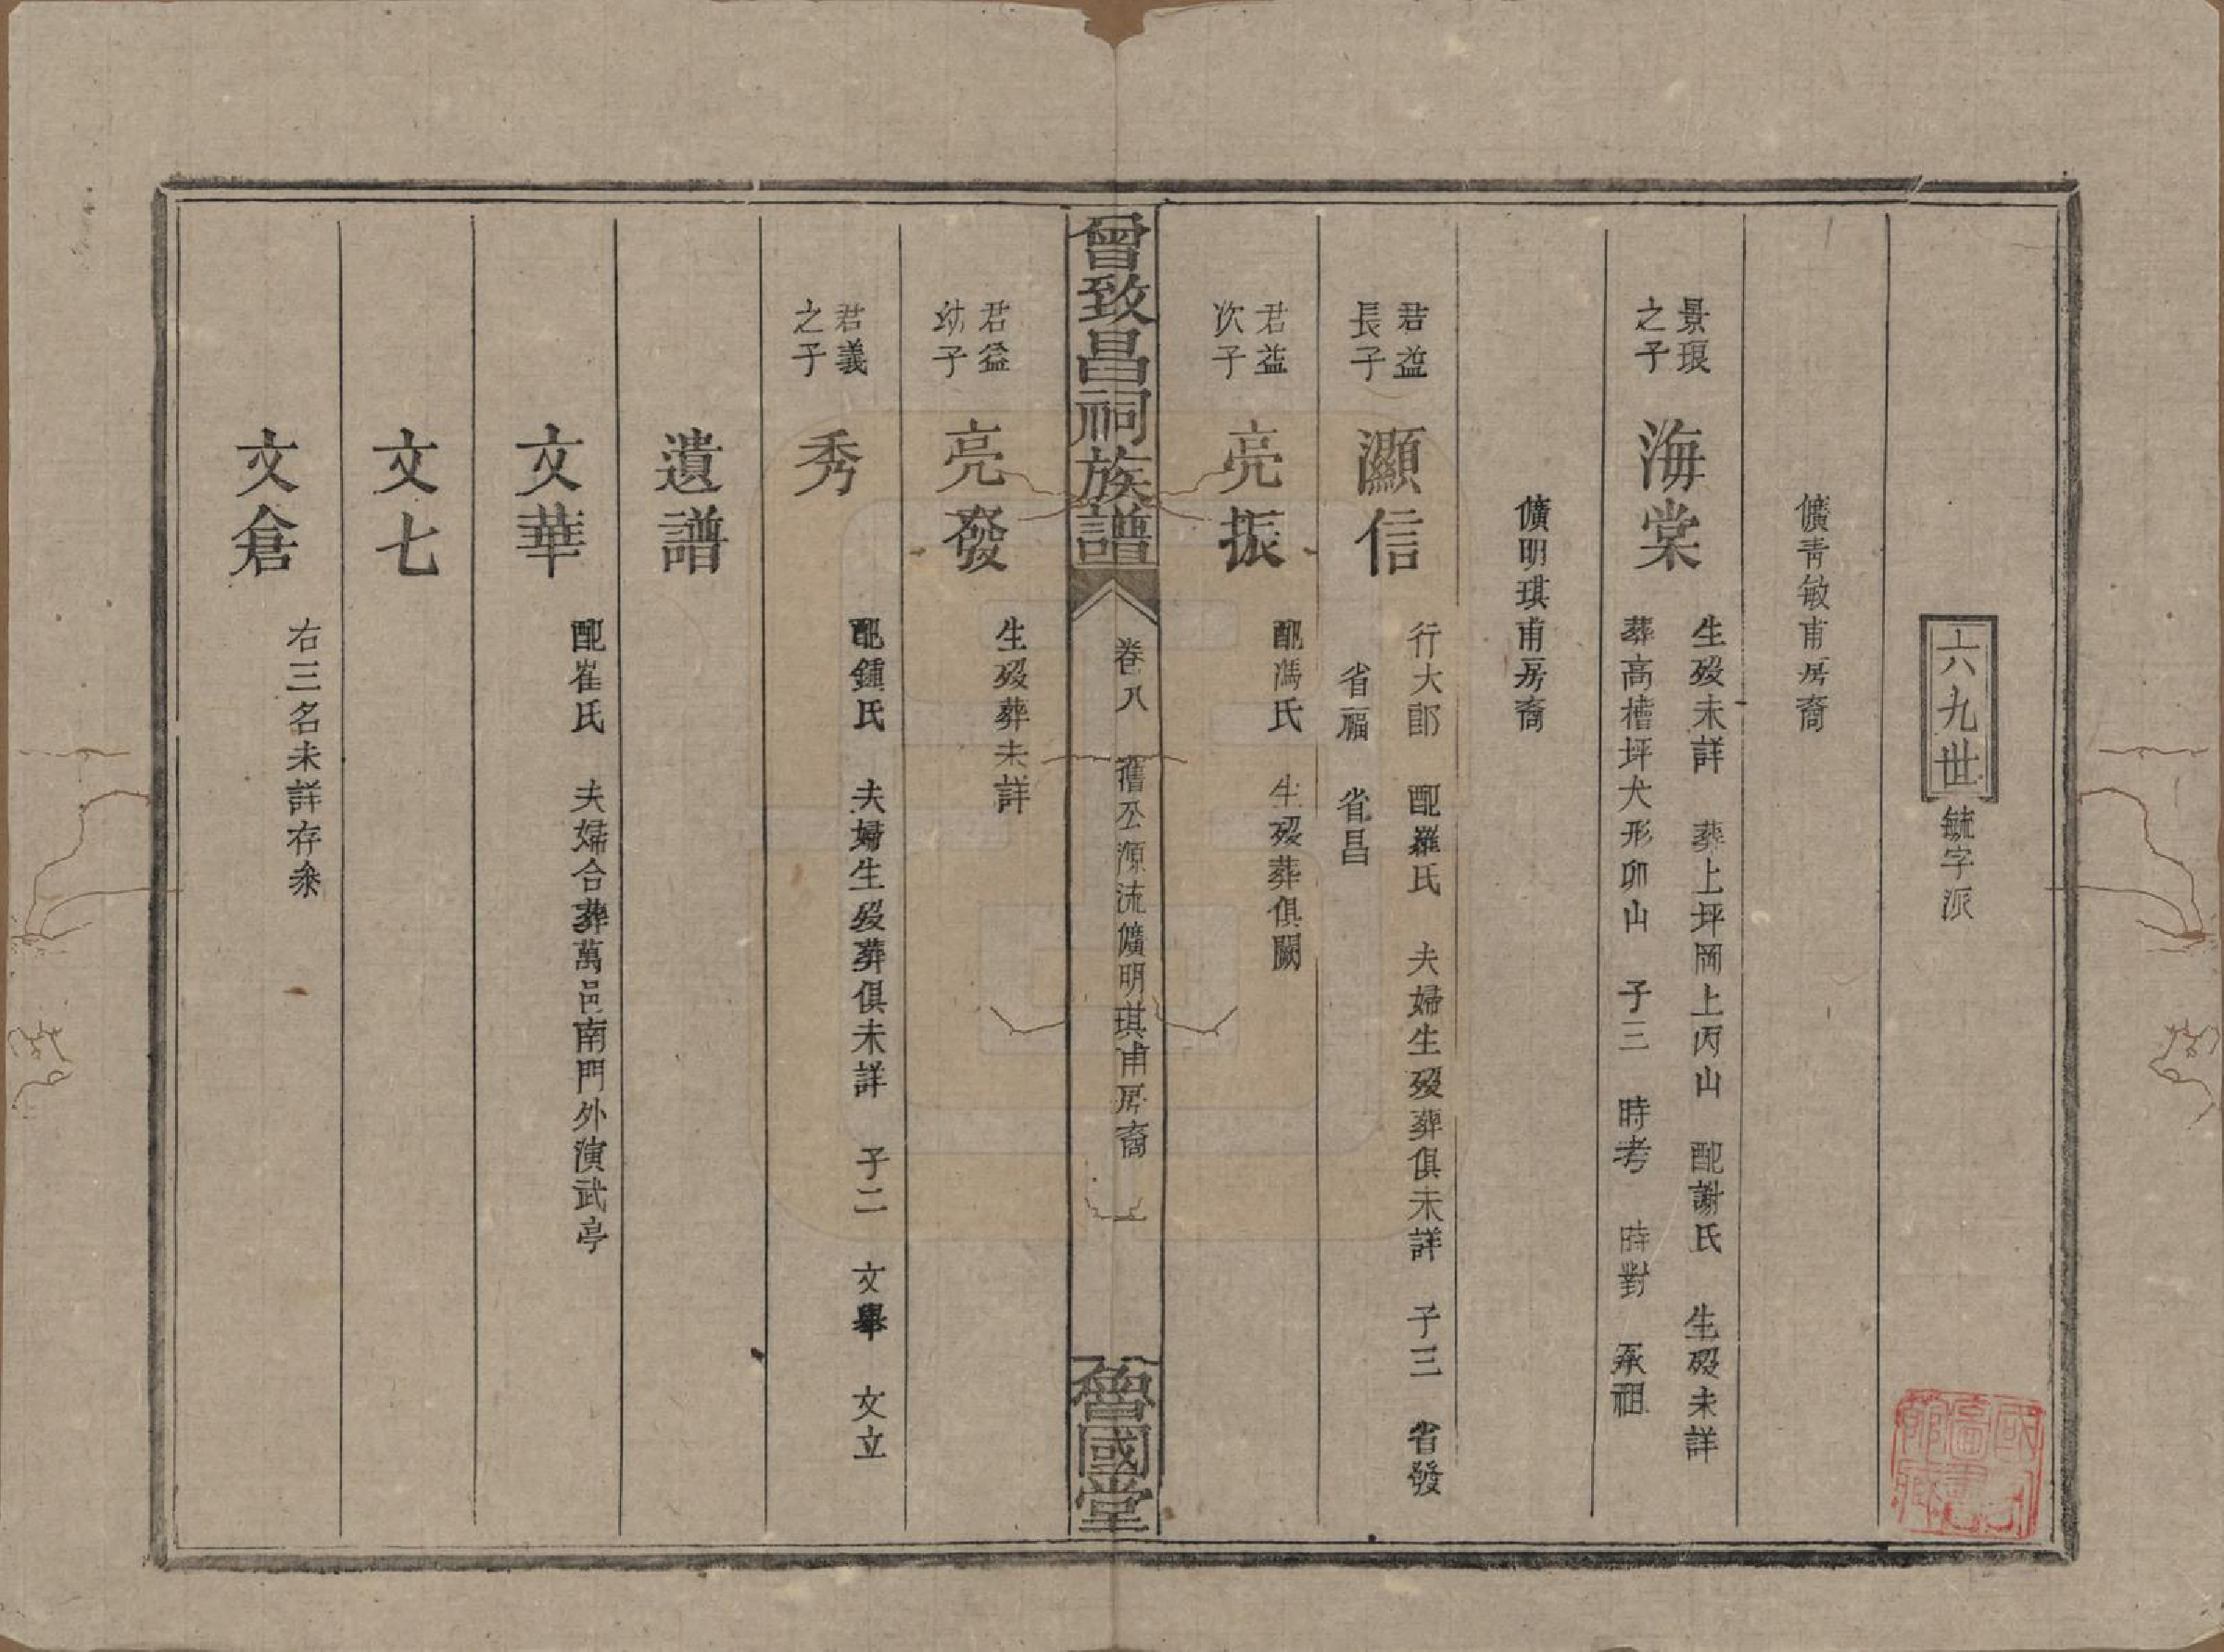 六九世 毓字派
儣青敏甫房裔
景琅之子
海棠
生歿未詳 葬上坪岡上丙山 配謝氏 生歿未詳
葬高槽坪犬形卯山 子三 時考 時對 承祖
儣明琪甫房裔
君益長子
灝信
行大郎 配羅氏 夫婦生歿葬俱未詳 子三 省發
省福 省昌
君益次子
亮振
配馮氏 生歿葬俱闕
曾致昌祠族譜
卷八 舊公源流儣明琪甫房裔 一
魯國堂
君益幼子
亮發
生歿葬未詳
君義之子
秀
配鍾氏 夫婦生歿葬俱未詳 子二 文舉 文立
遺譜
文華
配崔氏 夫婦合葬萬邑南門外演武亭
文七
文倉
右三名未詳存叅
國立圖書館藏